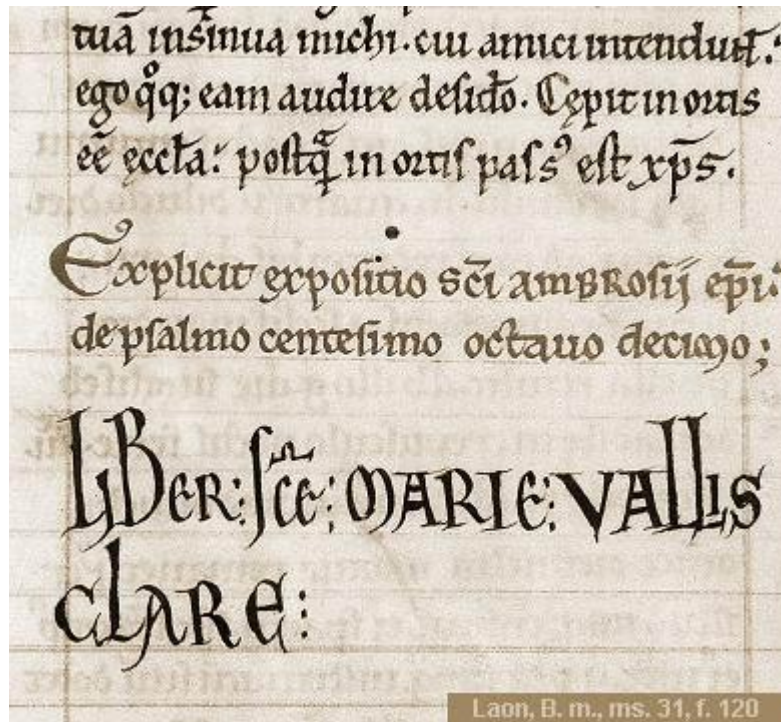 tuā insinua michi. cui amici intendunt.
ego qͦq; eam audire desid̄o. Cępit in ortis
eē ęccl̄a. postqᷓ in ortis pasꝰ est xp̄s.
Explicit expositio sc̄i AMBROSIJ ep̄i.
de psalmo centesimo octauo decimo;
LIBER: SC̄E: MARIE: VALLIS
CLARE:
Laon, B. m., ms. 31, f. 120